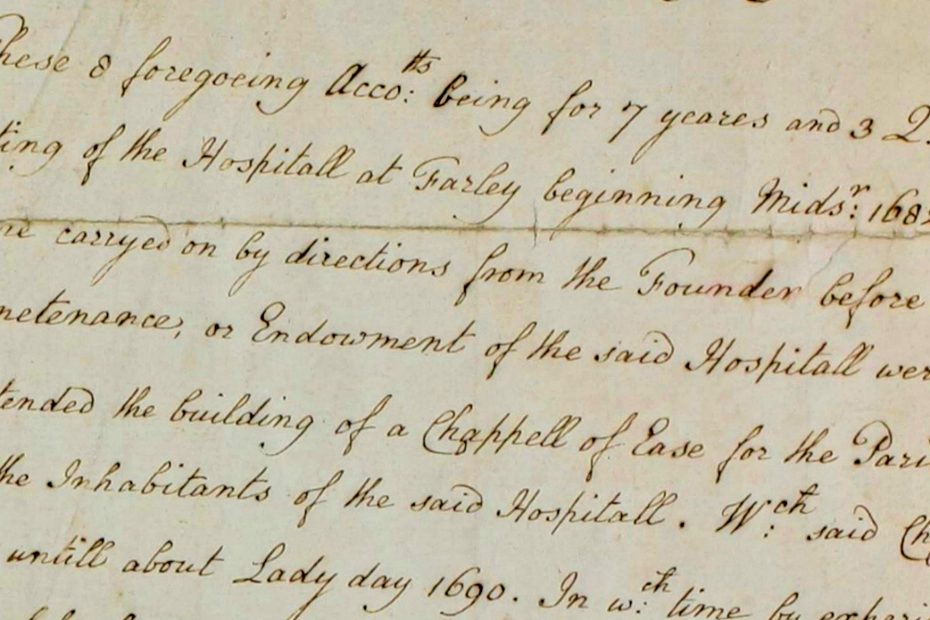 hese 8 foregoeing Acco:ts being for 7 yeares and 3 Q
ting of the Hospitall at Farley beginning Midsr: 1682
carryed on by directions from the Founder before
netenance, or Endowment of the said Hospitall wer
tended the building of a Chappell of Ease for the Pari
the Inhabitants of the said Hospitall. W:ch said Ch
untill about Lady day 1690. In w:ch time by experi